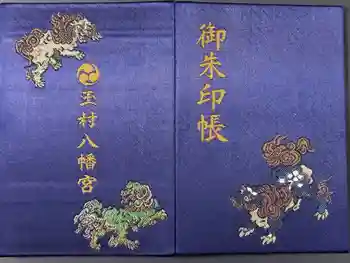 御朱印帳
玉村八幡宮